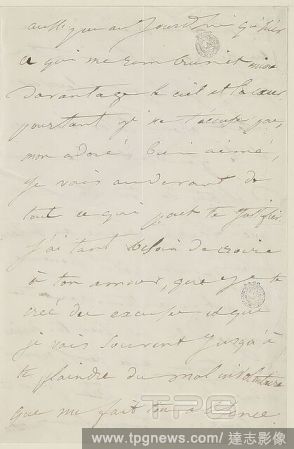 aussi que aujourd'hui qu'hier
a qui me rembrunit mieux
davantage le ciel et le cœur
pourtant je ne t'accuse pas,
mon adoré bien aimé,
je vais au devant de
tout ce qui peut te justifier
j'ai tant besoin de croire
à ton amour, que je te
crée des excuses et que
je vais souvent jusqu'à
te plaindre du mal involontaire
que me fait ton absence.
TPG
www.tpgnews.com / 達志影像